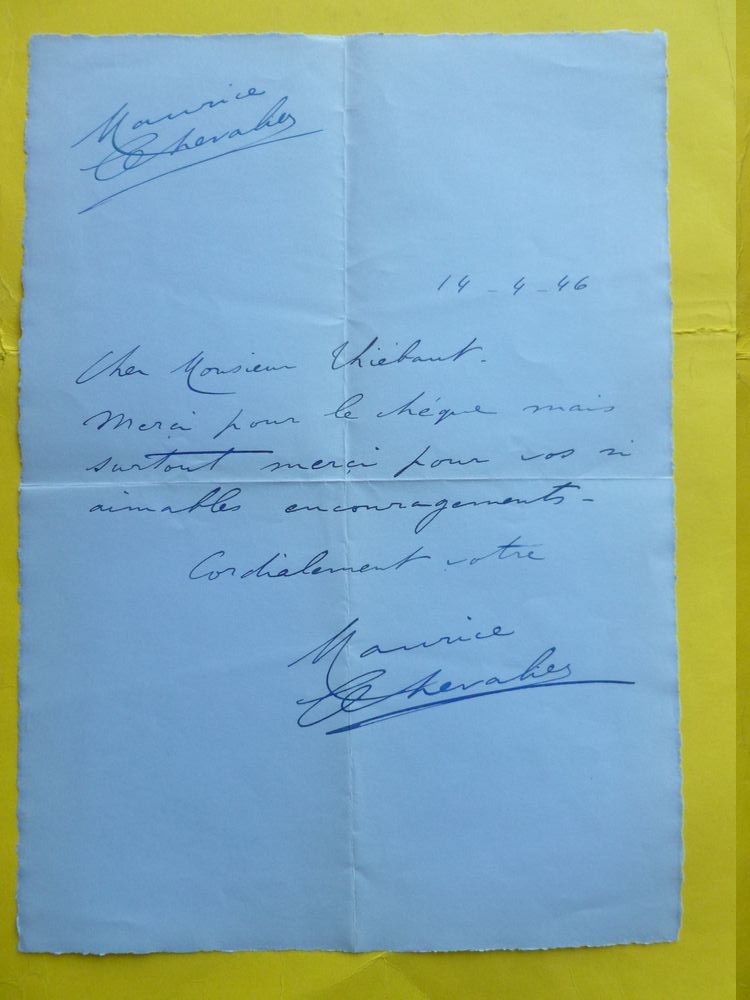 Maurice
Chevalier
14-4-46
Cher Monsieur Thiébaut.
Merci pour le chéque mais
surtout merci pour vos si
aimables encouragements-
Cordialement votre
Maurice
Chevalier